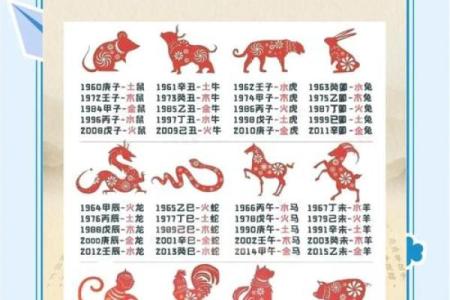 1960庚子-土鼠 1961辛丑-土牛 1962壬子-水虎 1963癸卯-水兔
1972壬子-木鼠 1973癸丑-木牛 1974甲子-木虎 1975乙卯-木兔
1984甲子-金鼠 1985乙丑-金牛 1986丙子-水虎 1987丁卯-火兔
1996丙子-水鼠 1997丁丑-水牛 1998戊子-火虎 1999己卯-土兔
2008戊子-火鼠 2009己丑-火牛 2010庚子-金虎 2011辛卯-金兔
1964甲辰-火龙 1965乙巳-火蛇 1966丙午-水马 1967丁未-水羊
1976丙辰-土龙 1977丁巳-土蛇 1978戊午-火马 1979己未-火羊
1988戊辰-木龙 1989己巳-木蛇 1990庚午-土马 1991辛未-土羊
2000庚辰-金龙 2001辛巳-金蛇 2002壬午-木马 2003癸未-木羊
2012壬辰-水龙 2013癸巳-水蛇 2014甲午-金马 2015乙未-金羊